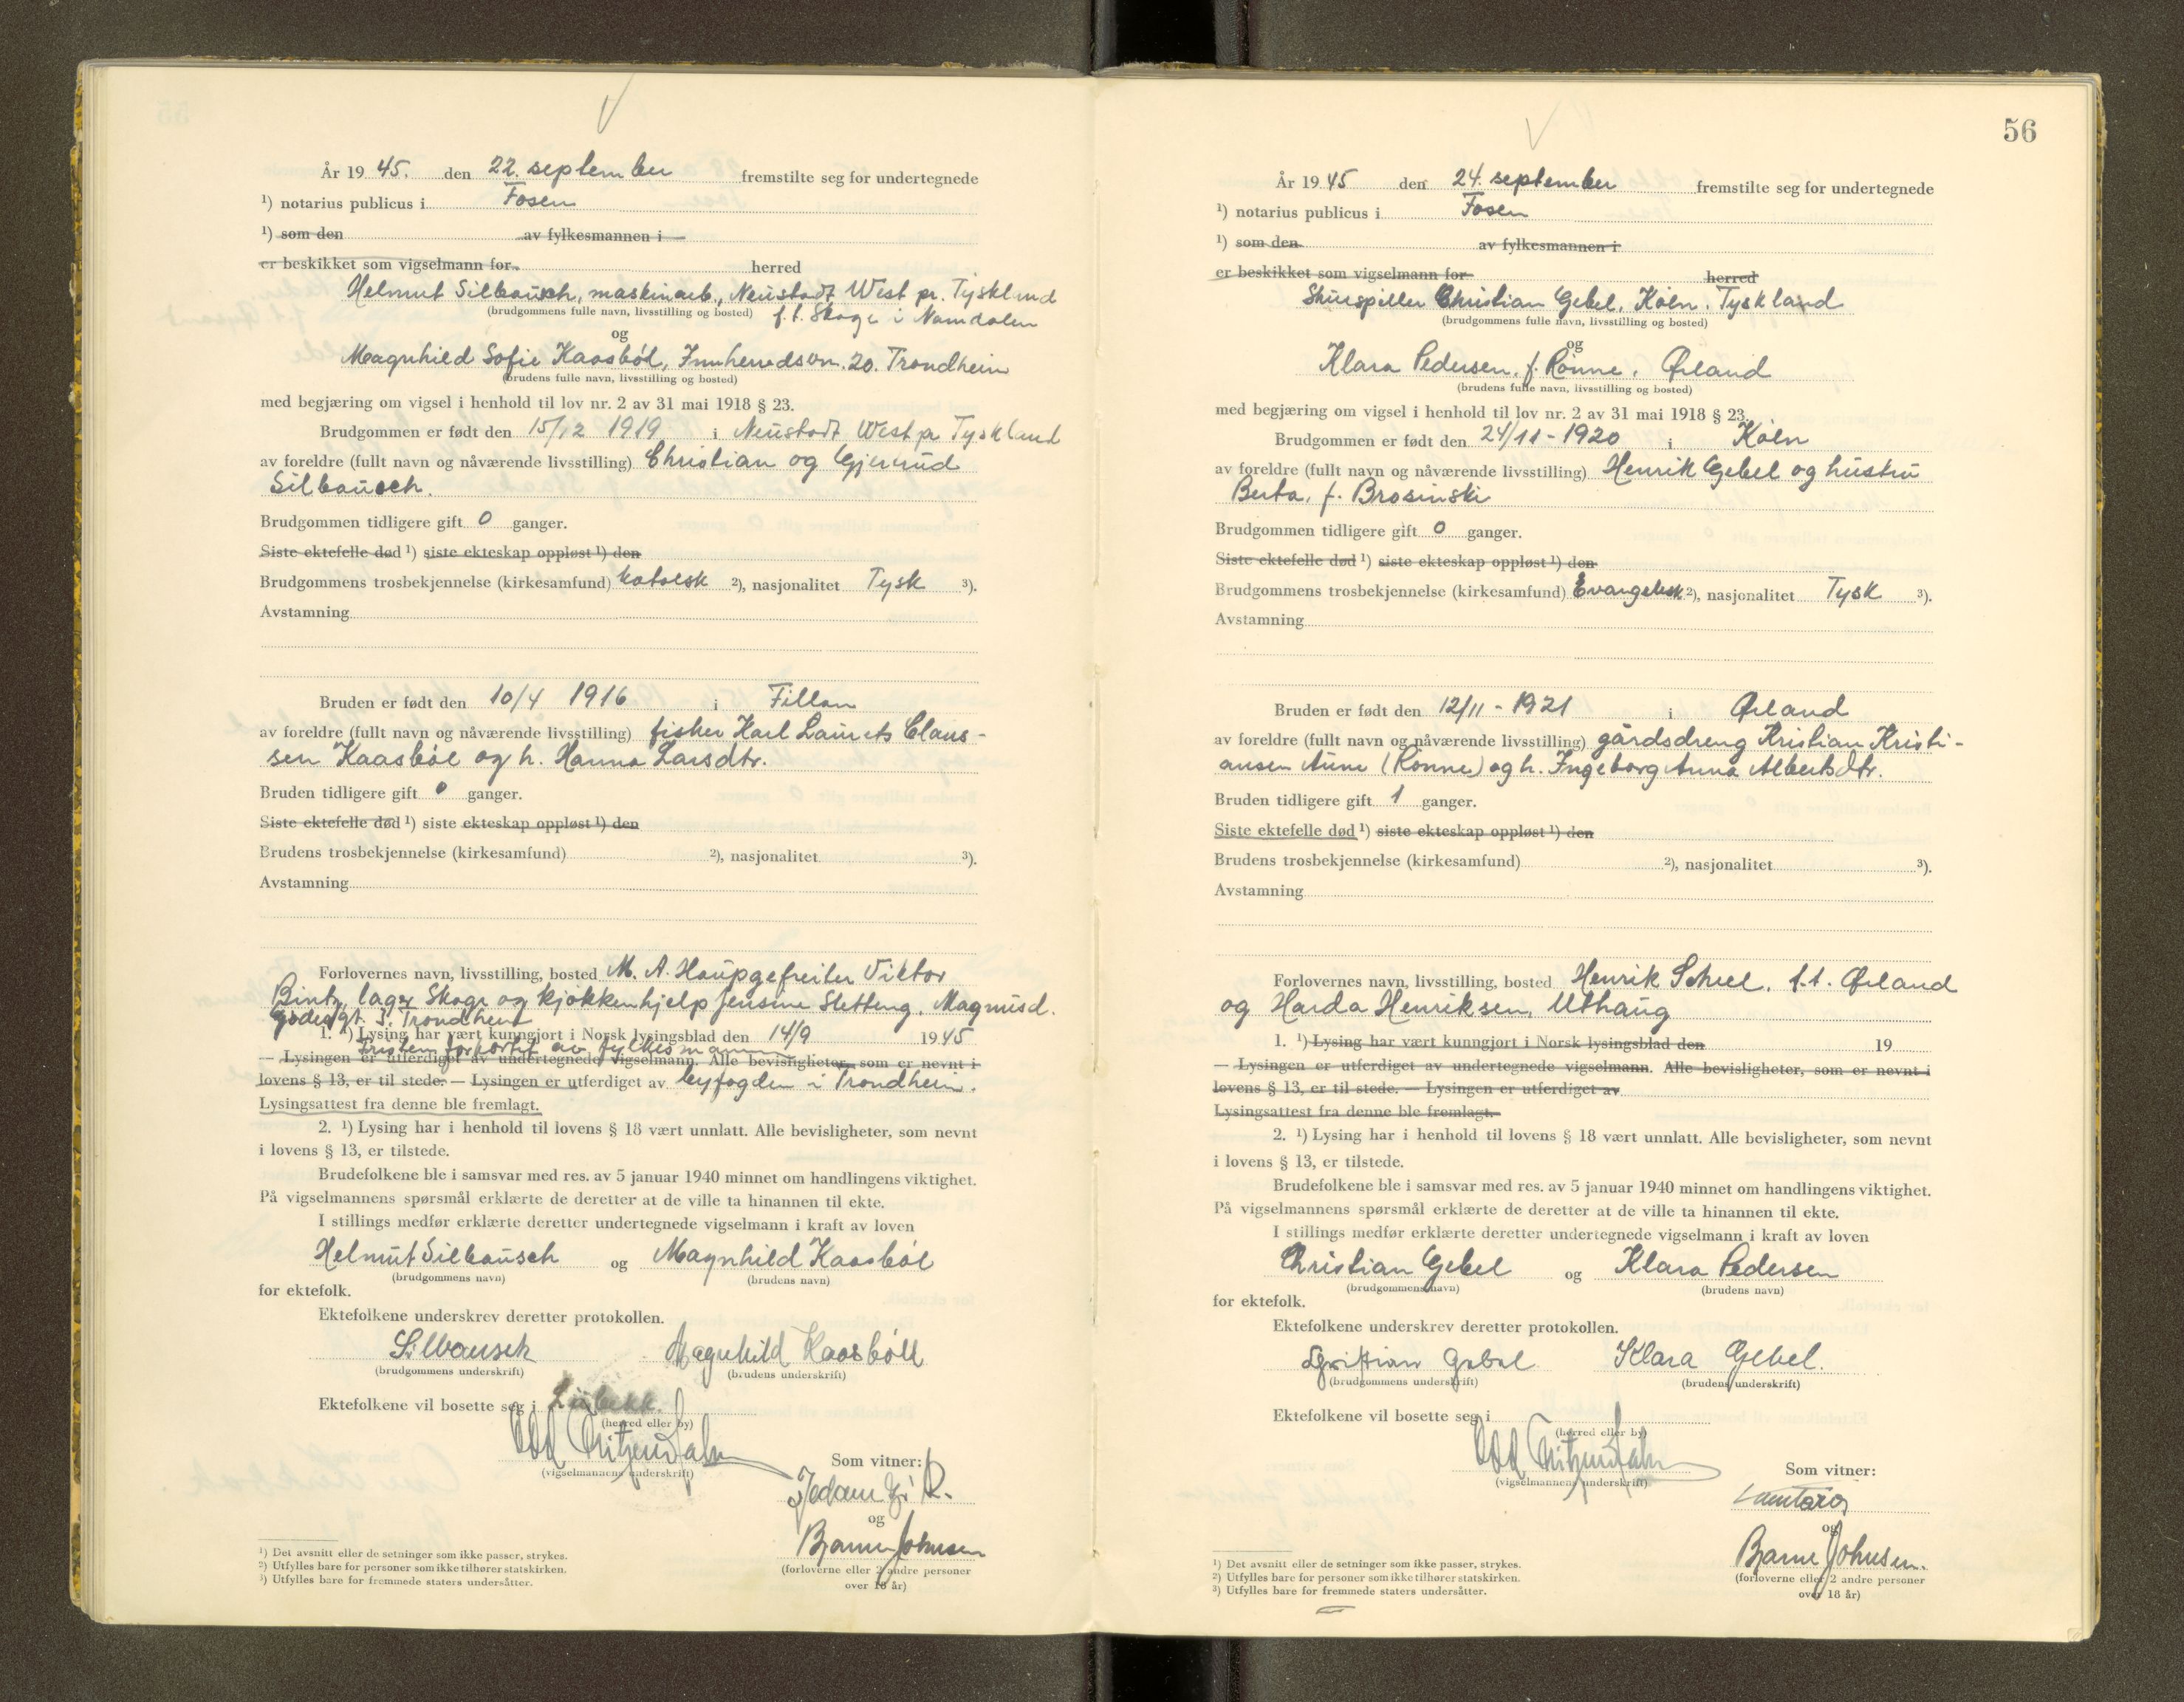 År 19 45. den 22. september fremstilte seg for undertegnede
¹) notarius publicus i Fosen
¹) som den av fylkesmannen i
er beskikket som vigselmann for herred
Helmut Silbausch, maskinarb., Neustadt West pr. Tyskland
(brudgommens fulle navn, livsstilling og bosted) f. t. Skage i Namdalen
og
Magnhild Sofie Kaasböl, Innherredsvn. 20. Trondheim
(brudens fulle navn, livsstilling og bosted)
med begjæring om vigsel i henhold til lov nr. 2 av 31 mai 1918 § 23.
Brudgommen er født den 15/12 1919 i Neustadt West pr Tyskland
av foreldre (fullt navn og nåværende livsstilling) Christian og Gjertrud
Silbausch.
Brudgommen tidligere gift 0 ganger.
Siste ektefelle død ¹) siste ekteskap oppløst ¹) den
Brudgommens trosbekjennelse (kirkesamfund) katolsk ²), nasjonalitet Tysk ³).
Avstamning
Bruden er født den 10/4 1916 i Fillan
av foreldre (fullt navn og nåværende livsstilling) fisker Karl Laurets Claus-
sen Kaasböl og h. Hanna Larsdtr.
Bruden tidligere gift 0 ganger.
Siste ektefelle død ¹) siste ekteskap oppløst ¹) den
Brudens trosbekjennelse (kirkesamfund) ²), nasjonalitet ³).
Avstamning
Forlovernes navn, livsstilling, bosted M. A. Haupgefreiter Viktor
Bintz, lager Skage og kjøkkenhjelp Jensine Sletteng, Magnus d.
godesgt. 5. Trondheim
1. ¹) Lysing har vært kunngjort i Norsk lysingsblad den 14/9 1945
Fristen forkortet av fylkesmannen
— Lysingen er utferdiget av undertegnede vigselmann. Alle bevisligheter, som er nevnt i
lovens § 13, er til stede. — Lysingen er utferdiget av byfogden i Trondheim.
Lysingsattest fra denne ble fremlagt.
2. ¹) Lysing har i henhold til lovens § 18 vært unnlatt. Alle bevisligheter, som nevnt
i lovens § 13, er tilstede.
Brudefolkene ble i samsvar med res. av 5 januar 1940 minnet om handlingens viktighet.
På vigselmannens spørsmål erklærte de deretter at de ville ta hinannen til ekte.
I stillings medfør erklærte deretter undertegnede vigselmann i kraft av loven
Helmut Silbausch og Magnhild Kaasböl
(brudgommens navn) (brudens navn)
for ektefolk.
Ektefolkene underskrev deretter protokollen.
Silbausch Magnhild Kaasböll
(brudgommens underskrift) (brudens underskrift)
Ektefolkene vil bosette seg i Lübekk.
(herred eller by)
(vigselmannens underskrift)
Som vitner:
og
Bjarne Johnsen
(forloverne eller 2 andre personer
over 18 år)
¹) Det avsnitt eller de setninger som ikke passer, strykes.
²) Utfylles bare for personer som ikke tilhører statskirken.
³) Utfylles bare for fremmede staters undersåtter.
56
År 19 45 den 24. september fremstilte seg for undertegnede
¹) notarius publicus i Fosen
¹) som den av fylkesmannen i
er beskikket som vigselmann for herred
Skuespiller Christian Gebel, Køln, Tyskland
(brudgommens fulle navn, livsstilling og bosted)
og
Klara Pedersen, f. Rønne, Ørland
(brudens fulle navn, livsstilling og bosted)
med begjæring om vigsel i henhold til lov nr. 2 av 31 mai 1918 § 23.
Brudgommen er født den 24/11 - 1920 i Køln
av foreldre (fullt navn og nåværende livsstilling) Henrik Gebel og hustru
Berta, f. Brosinski
Brudgommen tidligere gift 0 ganger.
Siste ektefelle død ¹) siste ekteskap oppløst ¹) den
Brudgommens trosbekjennelse (kirkesamfund) Evangelisk ²), nasjonalitet Tysk ³).
Avstamning
Bruden er født den 12/11 - 1921 i Ørland
av foreldre (fullt navn og nåværende livsstilling) gårdsdreng Kristian Kristi-
ansen Aune (Rønne) og h. Ingeborg Anna Albertsdtr.
Bruden tidligere gift 1 ganger.
Siste ektefelle død ¹) siste ekteskap oppløst ¹) den
Brudens trosbekjennelse (kirkesamfund) ²), nasjonalitet ³).
Avstamning
Forlovernes navn, livsstilling, bosted Henrik Scheel, f.t. Ørland
og Harda Henriksen, Uthaug
1. ¹) Lysing har vært kunngjort i Norsk lysingsblad den 19
— Lysingen er utferdiget av undertegnede vigselmann. Alle bevisligheter, som er nevnt i
lovens § 13, er til stede. — Lysingen er utferdiget av
Lysingsattest fra denne ble fremlagt.
2. ¹) Lysing har i henhold til lovens § 18 vært unnlatt. Alle bevisligheter, som nevnt
i lovens § 13, er tilstede.
Brudefolkene ble i samsvar med res. av 5 januar 1940 minnet om handlingens viktighet.
På vigselmannens spørsmål erklærte de deretter at de ville ta hinannen til ekte.
I stillings medfør erklærte deretter undertegnede vigselmann i kraft av loven
Christian Gebel og Klara Pedersen
(brudgommens navn) (brudens navn)
for ektefolk.
Ektefolkene underskrev deretter protokollen.
Christian Gebel Klara Gebel.
(brudgommens underskrift) (brudens underskrift)
Ektefolkene vil bosette seg i
(herred eller by)
(vigselmannens underskrift)
Som vitner:
og
Bjarne Johnsen.
(forloverne eller 2 andre personer
over 18 år)
¹) Det avsnitt eller de setninger som ikke passer, strykes.
²) Utfylles bare for personer som ikke tilhører statskirken.
³) Utfylles bare for fremmede staters undersåtter.